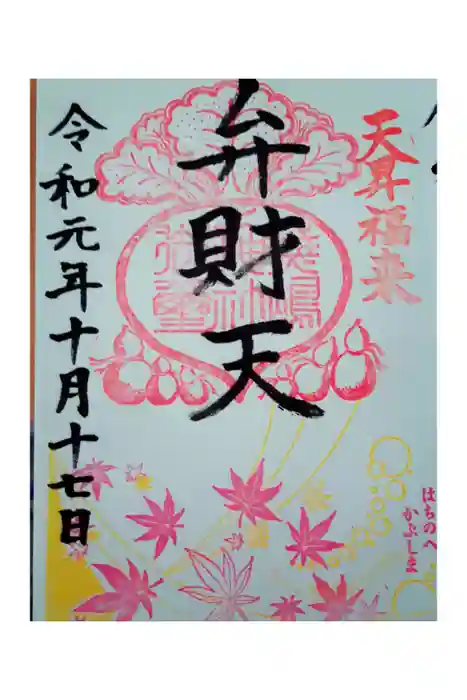 天昇福来
はちのへ
かぶしま
弁財天
令和元年十月十七日